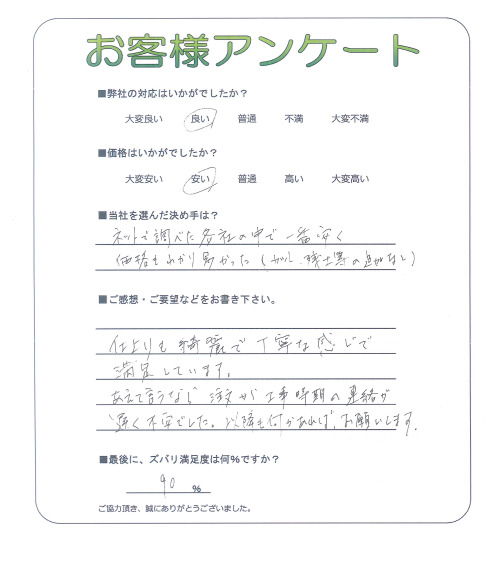 お客様アンケート
■弊社の対応はいかがでしたか？
大変良い 良い 普通 不満 大変不満
■価格はいかがでしたか？
大変安い 安い 普通 高い 大変高い
■当社を選んだ決め手は？
ネットで調べた各社の中で一番安く
価格もわかり易かった(ガラ、残土等の追加なし)
■ご感想・ご要望などをお書き下さい。
仕上りも綺麗で丁寧な感じで
満足しています。
あえて言うなら 注文 が 工事時期の連絡が
遅く不安でした。以降も何かあれば、お願いします。
■最後に、ズバリ満足度は何%ですか？
90 %
ご協力頂き、誠にありがとうございました。